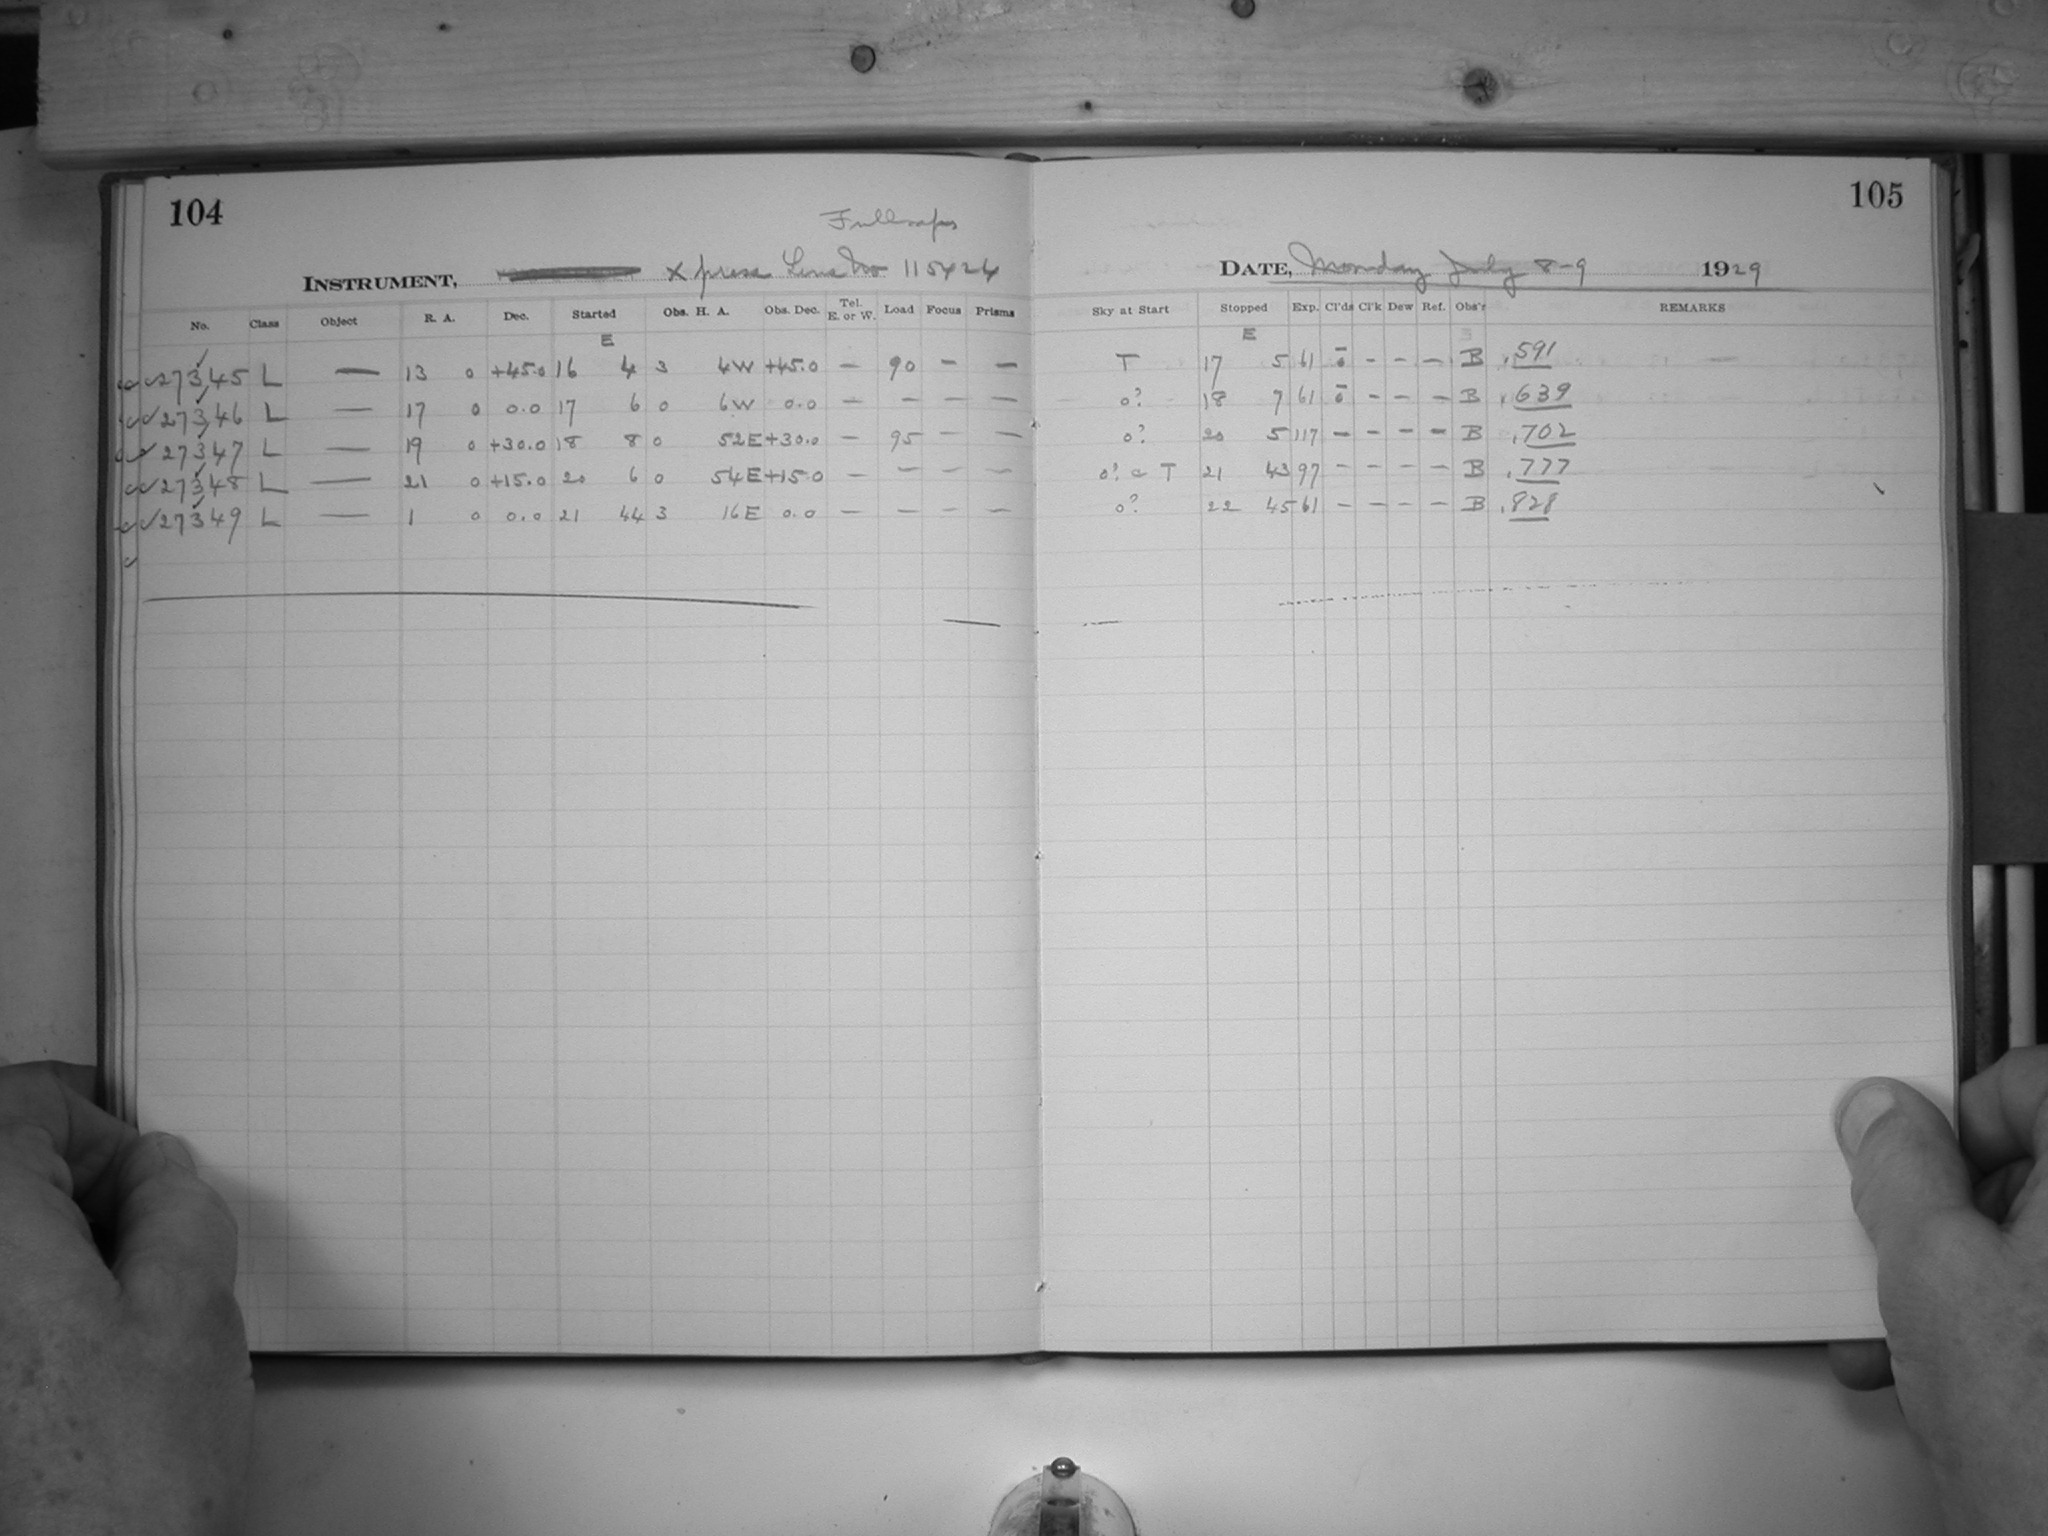 104
INSTRUMENT, Xpress Lens No 115424
No. Class Object R. A. Dec. Started Obs. H. A. Obs. Dec. Tel. E. or W. Load Focus Prisms
E
✓✓27345 L — 13 0 +45.0 16 4 3 4W +45.0 — 90 – —
✓✓27346 L — 17 0 0.0 17 6 0 6W 0.0 — — — —
✓✓27347 L — 19 0 +30.0 18 8 0 52E +30.0 — 95 — —
✓✓27348 L — 21 0 +15.0 20 6 0 54E +15.0 — — — —
✓✓27349 L — 1 0 0.0 21 44 3 16E 0.0 — — — —
105
DATE, Monday July 8-9 1929
Sky at Start Stopped Exp. Cl'ds Cl'k Dew Ref. Obs'r REMARKS
E
T 17 5 61 ō – – — B .591
o? 18 7 61 ō – – – B .639
o? 20 5 117 – – – – B .702
o? c T 21 43 97 – – – – B .777
o? 22 45 61 – – – – B .828